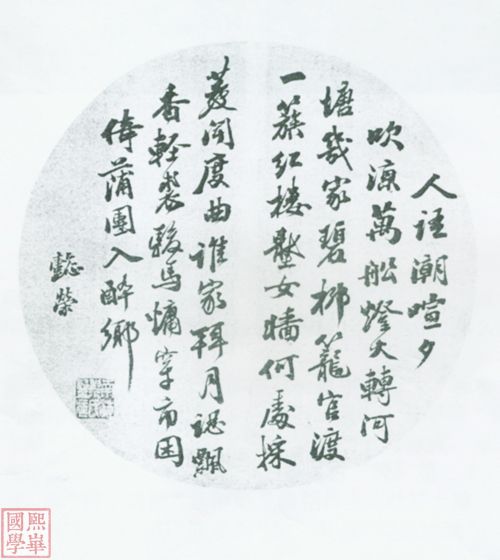 人語潮喧夕
吹涼萬船燈火轉河
塘幾家碧柳籠官渡
一簇紅樓壓女牆何處採
菱聞度曲誰家拜月認飄
香輕裘駿馬慵穿市困
倚蒲團入醉鄉
懿榮
熙崋
國學